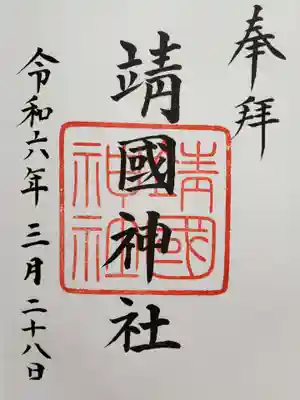 奉拝
靖國神社
靖國神社
令和六年 三月二十八日